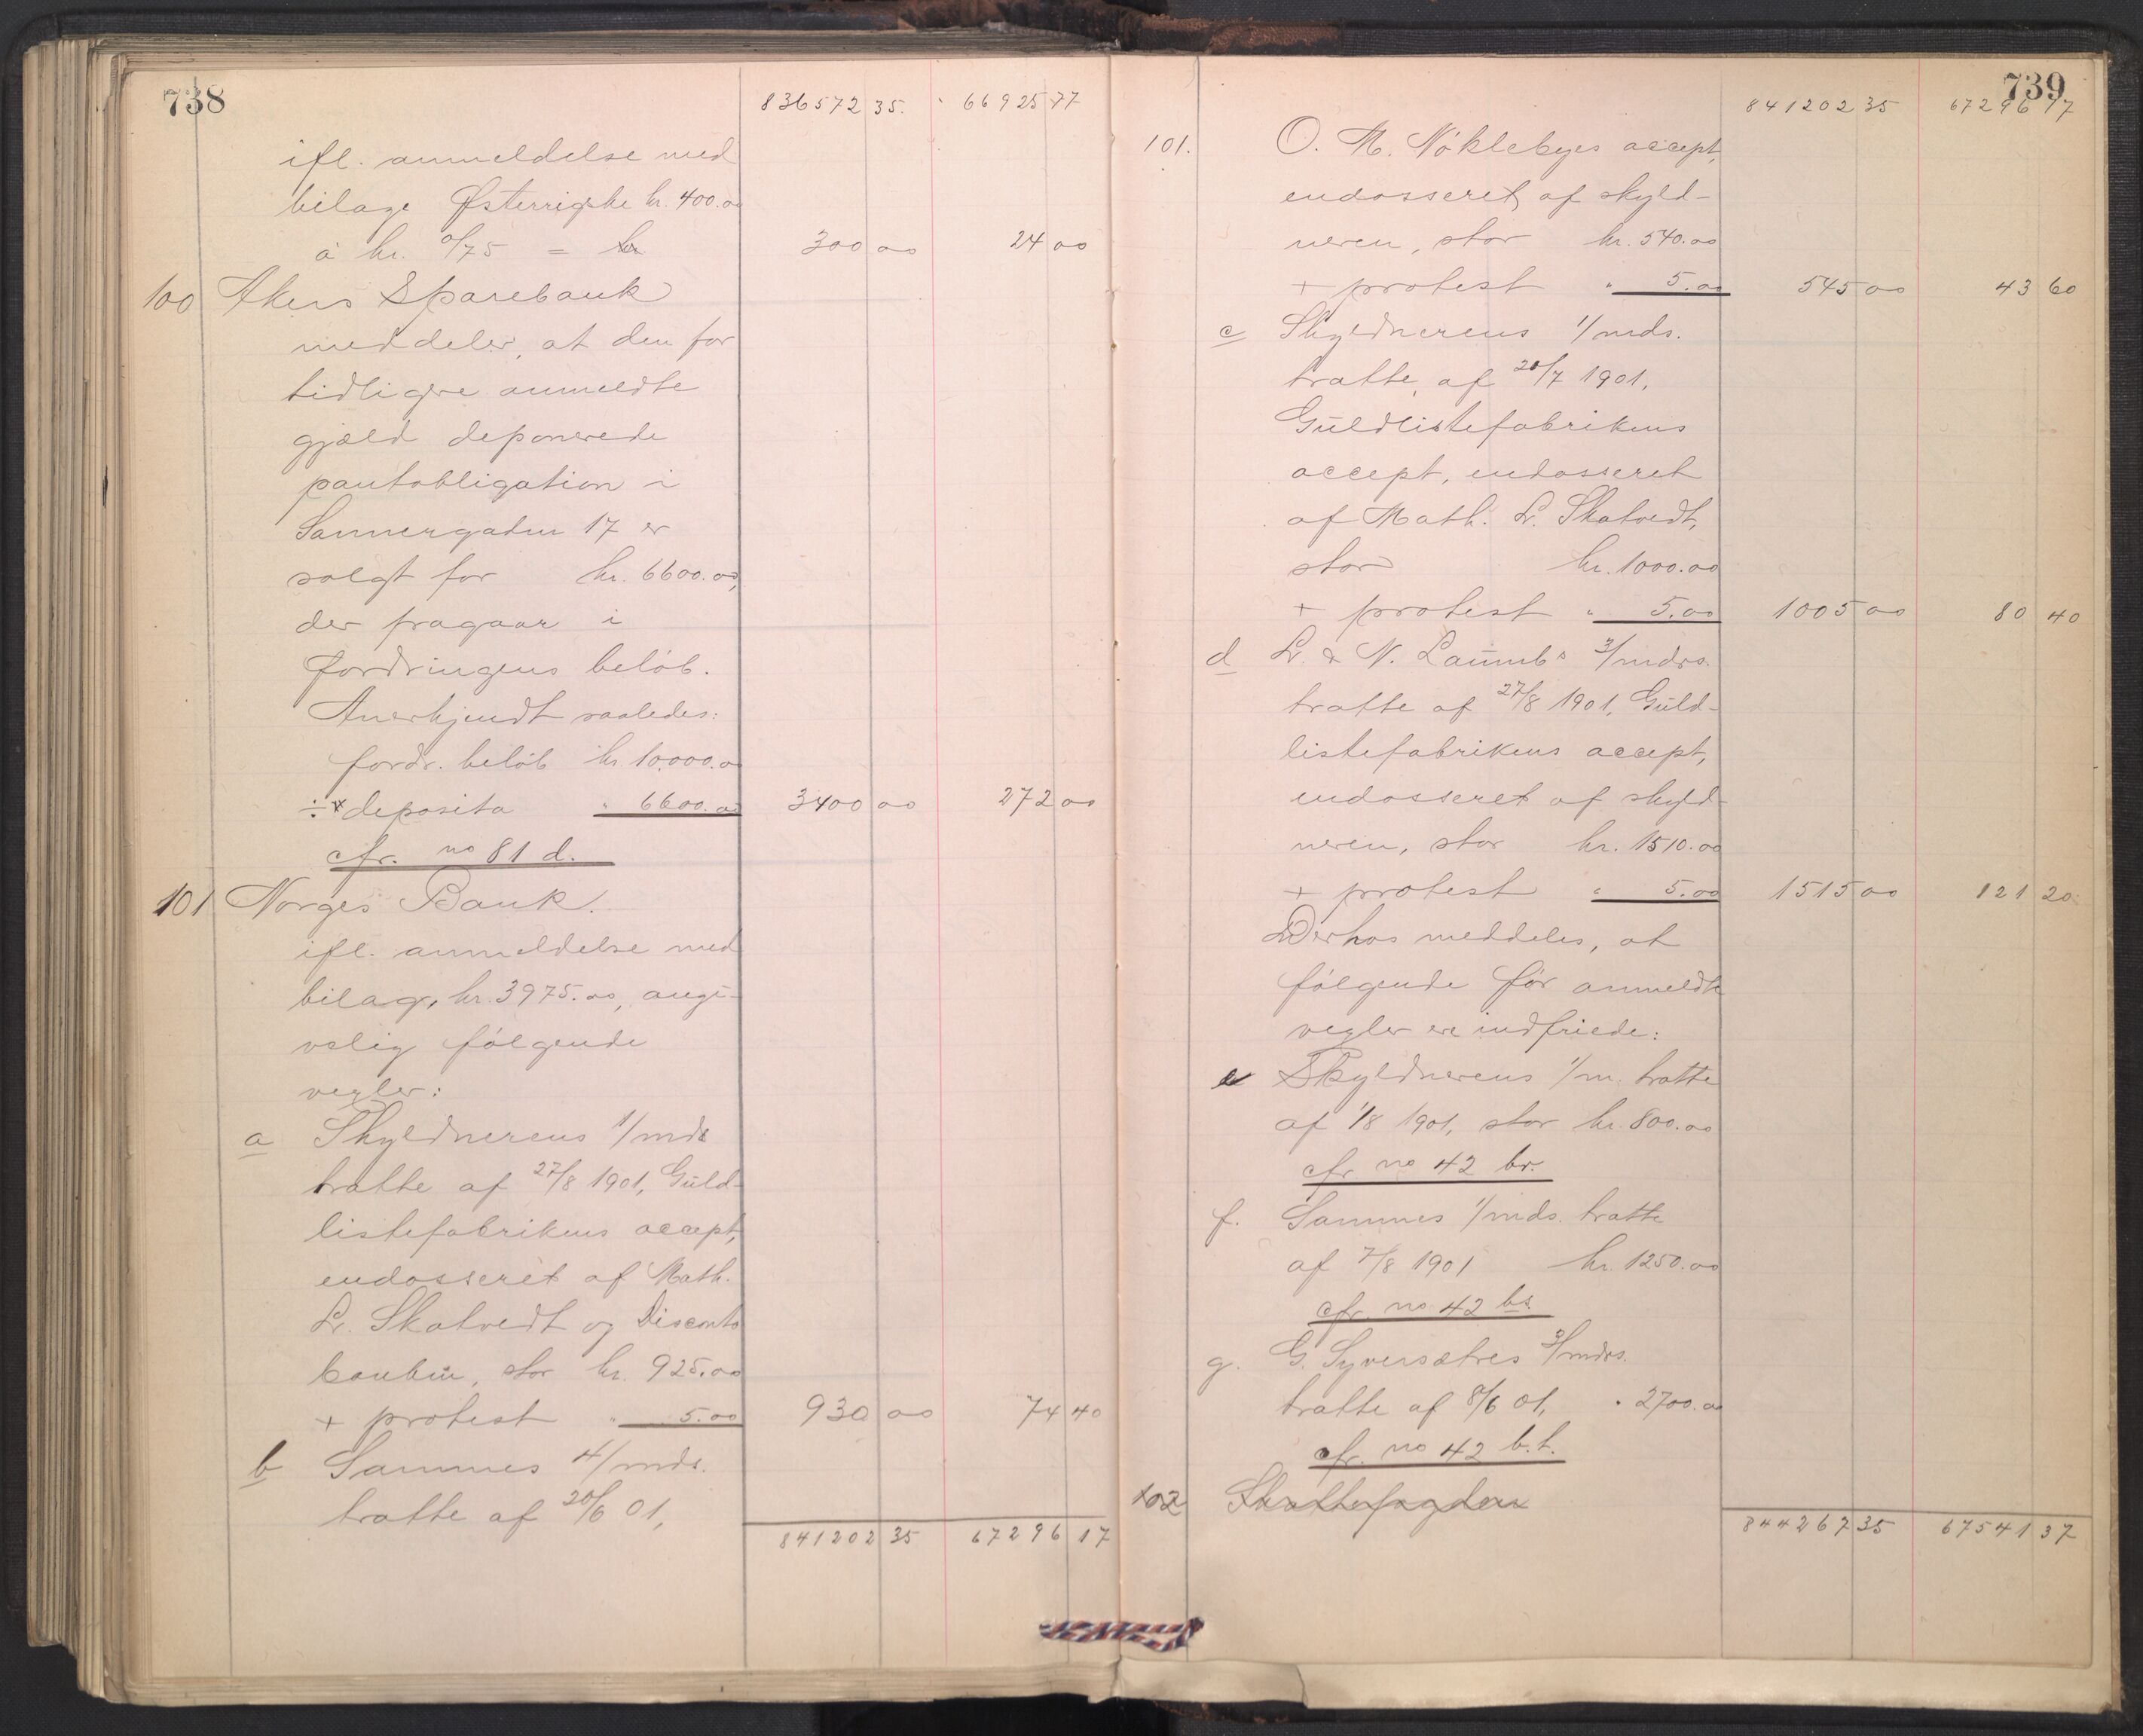 738
836572 35. 66925 77
ifl. anmeldelse med
bilage Østerrigske kr. 400.00
à kr. 0/75 = kr 300 00 24 00
100 Akers Sparebank
meddeler, at den for
tidligere anmeldte
gjæld deponerede
pantobligation i
Sannergaden 17 er
solgt for kr. 6600.00,
der fragaar i
fordringens beløb.
Anerkjendt saaledes:
fordr. beløb kr 10.000.00
÷ deposita " 6600.00 3400 00 272 00
cfr. no 81 d.
101 Norges Bank.
ifl. anmeldelse med
bilag, kr. 3975.00, angi-
velig følgende
vexler:
a Skyldnerens 1/mds
tratte af 27/8 1901, Guld-
listefabrikens accept,
endosseret af Math.
Lr. Skatvedt og Disconto
banken, stor kr. 925.00
+ protest " 5.00 930 00 74 40
b Sammes 4/mds.
tratte af 20/6 01,
841202 35 67296 17
739
841202 35 67296 17
101. O. M. Nøklebyes accept,
endosseret af skyld-
neren, stor kr. 540.00
+ protest " 5.00 545 00 43 60
c Skyldnerens 1/mds.
tratte af 20/7 1901,
Guldlistefabrikens
accept, endosseret
af Math. Lr. Skatvedt,
stor kr. 1000.00
+ protest " 5.00 1005 00 80 40
d L. & N. Laumbs 3/mdrs.
tratte af 27/8 1901, Guld-
listefabrikens accept,
endosseret af skyld-
neren, stor kr. 1510.00
+ protest " 5.00 1515 00 121 20
Derhos meddeles, at
følgende før anmeldte
vexler er indfriede:
e Skyldnerens 1/m. tratte
af 1/8 1901, stor kr. 800.00
cfr no 42 br.
f. Sammes 1/mds. tratte
af 7/8 1901 kr. 1250.00
cfr. no 42 bs.
g. G. Syversætres 3/mdrs.
tratte af 8/6 01, " 2700.00
cfr. no 42 b.t.
102 Skattefogden
844267 35 67541 37